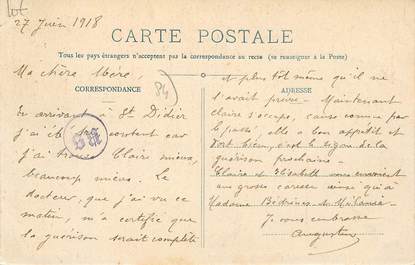 Lot
27 Juin 1918
CARTE POSTALE
Tous les pays étrangers n'acceptent pas la correspondance au recto (se renseigner à la Poste)
Ma chère Mère,
84
CORRESPONDANCE
En arrivant à St Didier
j'ai été content car
j'ai trouvé Claire mieux,
beaucoup mieux. Le
docteur, que j'ai vu ce
matin, m'a certifié que
la guérison serait complète
et plus tôt même qu'il ne
ADRESSE
l'avait prévu - Maintenant
Claire s'occupe, cause comme par
le passé, elle a bon appétit et
dort bien, c'est le signe de la
guérison prochaine -
Claire et Elisabeth vous envoient
une grosse caresse ainsi qu'à
Madame Bédrines et
Je vous embrasse
Augustin